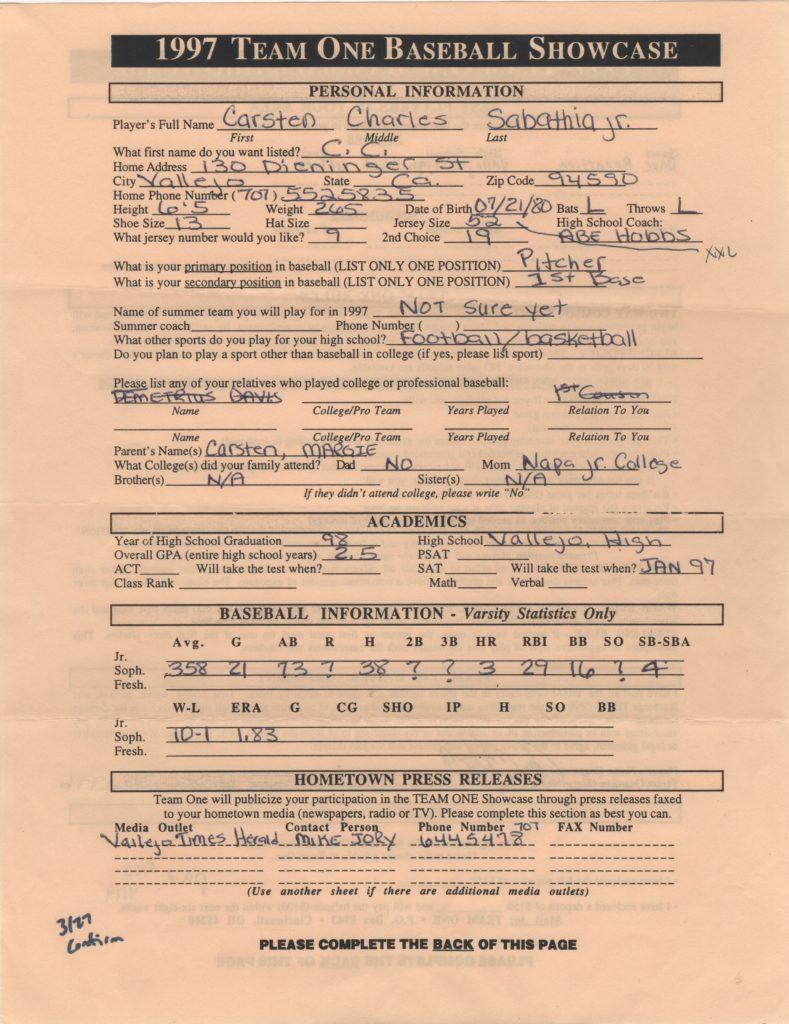 1997 TEAM ONE BASEBALL SHOWCASE
PERSONAL INFORMATION
Player's Full Name Carsten Charles Sabathia jr.
First Middle Last
What first name do you want listed? C. C.
Home Address 130 Dieninger St
City Vallejo State Ca. Zip Code 94590
Home Phone Number (707) 5525835
Height 6'5 Weight 265 Date of Birth 07/21/80 Bats L Throws L
Shoe Size 13 Hat Size Jersey Size 52 High School Coach:
What jersey number would you like? 9 2nd Choice 19 ABE HOBBS
XXL
What is your primary position in baseball (LIST ONLY ONE POSITION) Pitcher
What is your secondary position in baseball (LIST ONLY ONE POSITION) 1st Base
Name of summer team you will play for in 1997 NOT sure yet
Summer coach Phone Number ( )
What other sports do you play for your high school? Football/basketball
Do you plan to play a sport other than baseball in college (if yes, please list sport)
Please list any of your relatives who played college or professional baseball:
DEMETRIUS DAVIS 1st Cousin
Name College/Pro Team Years Played Relation To You
Name College/Pro Team Years Played Relation To You
Parent's Name(s) Carsten, MARGIE
What College(s) did your family attend? Dad NO Mom Napa jr. College
Brother(s) N/A Sister(s) N/A
If they didn't attend college, please write "No"
ACADEMICS
Year of High School Graduation 98 High School Vallejo, High
Overall GPA (entire high school years) 2.5 PSAT
ACT Will take the test when? SAT Will take the test when? JAN 97
Class Rank Math Verbal
BASEBALL INFORMATION - Varsity Statistics Only
Avg. G AB R H 2B 3B HR RBI BB SO SB-SBA
Jr.
Soph. .358 21 73 ? 38 ? ? 3 29 16 ? 4
Fresh.
W-L ERA G CG SHO IP H SO BB
Jr.
Soph. 10-1 1.83
Fresh.
HOMETOWN PRESS RELEASES
Team One will publicize your participation in the TEAM ONE Showcase through press releases faxed
to your hometown media (newspapers, radio or TV). Please complete this section as best you can.
Media Outlet Contact Person Phone Number 707 FAX Number
Vallejo Times Herald MIKE JORY 6445478
(Use another sheet if there are additional media outlets)
3/27
Confirm
PLEASE COMPLETE THE BACK OF THIS PAGE